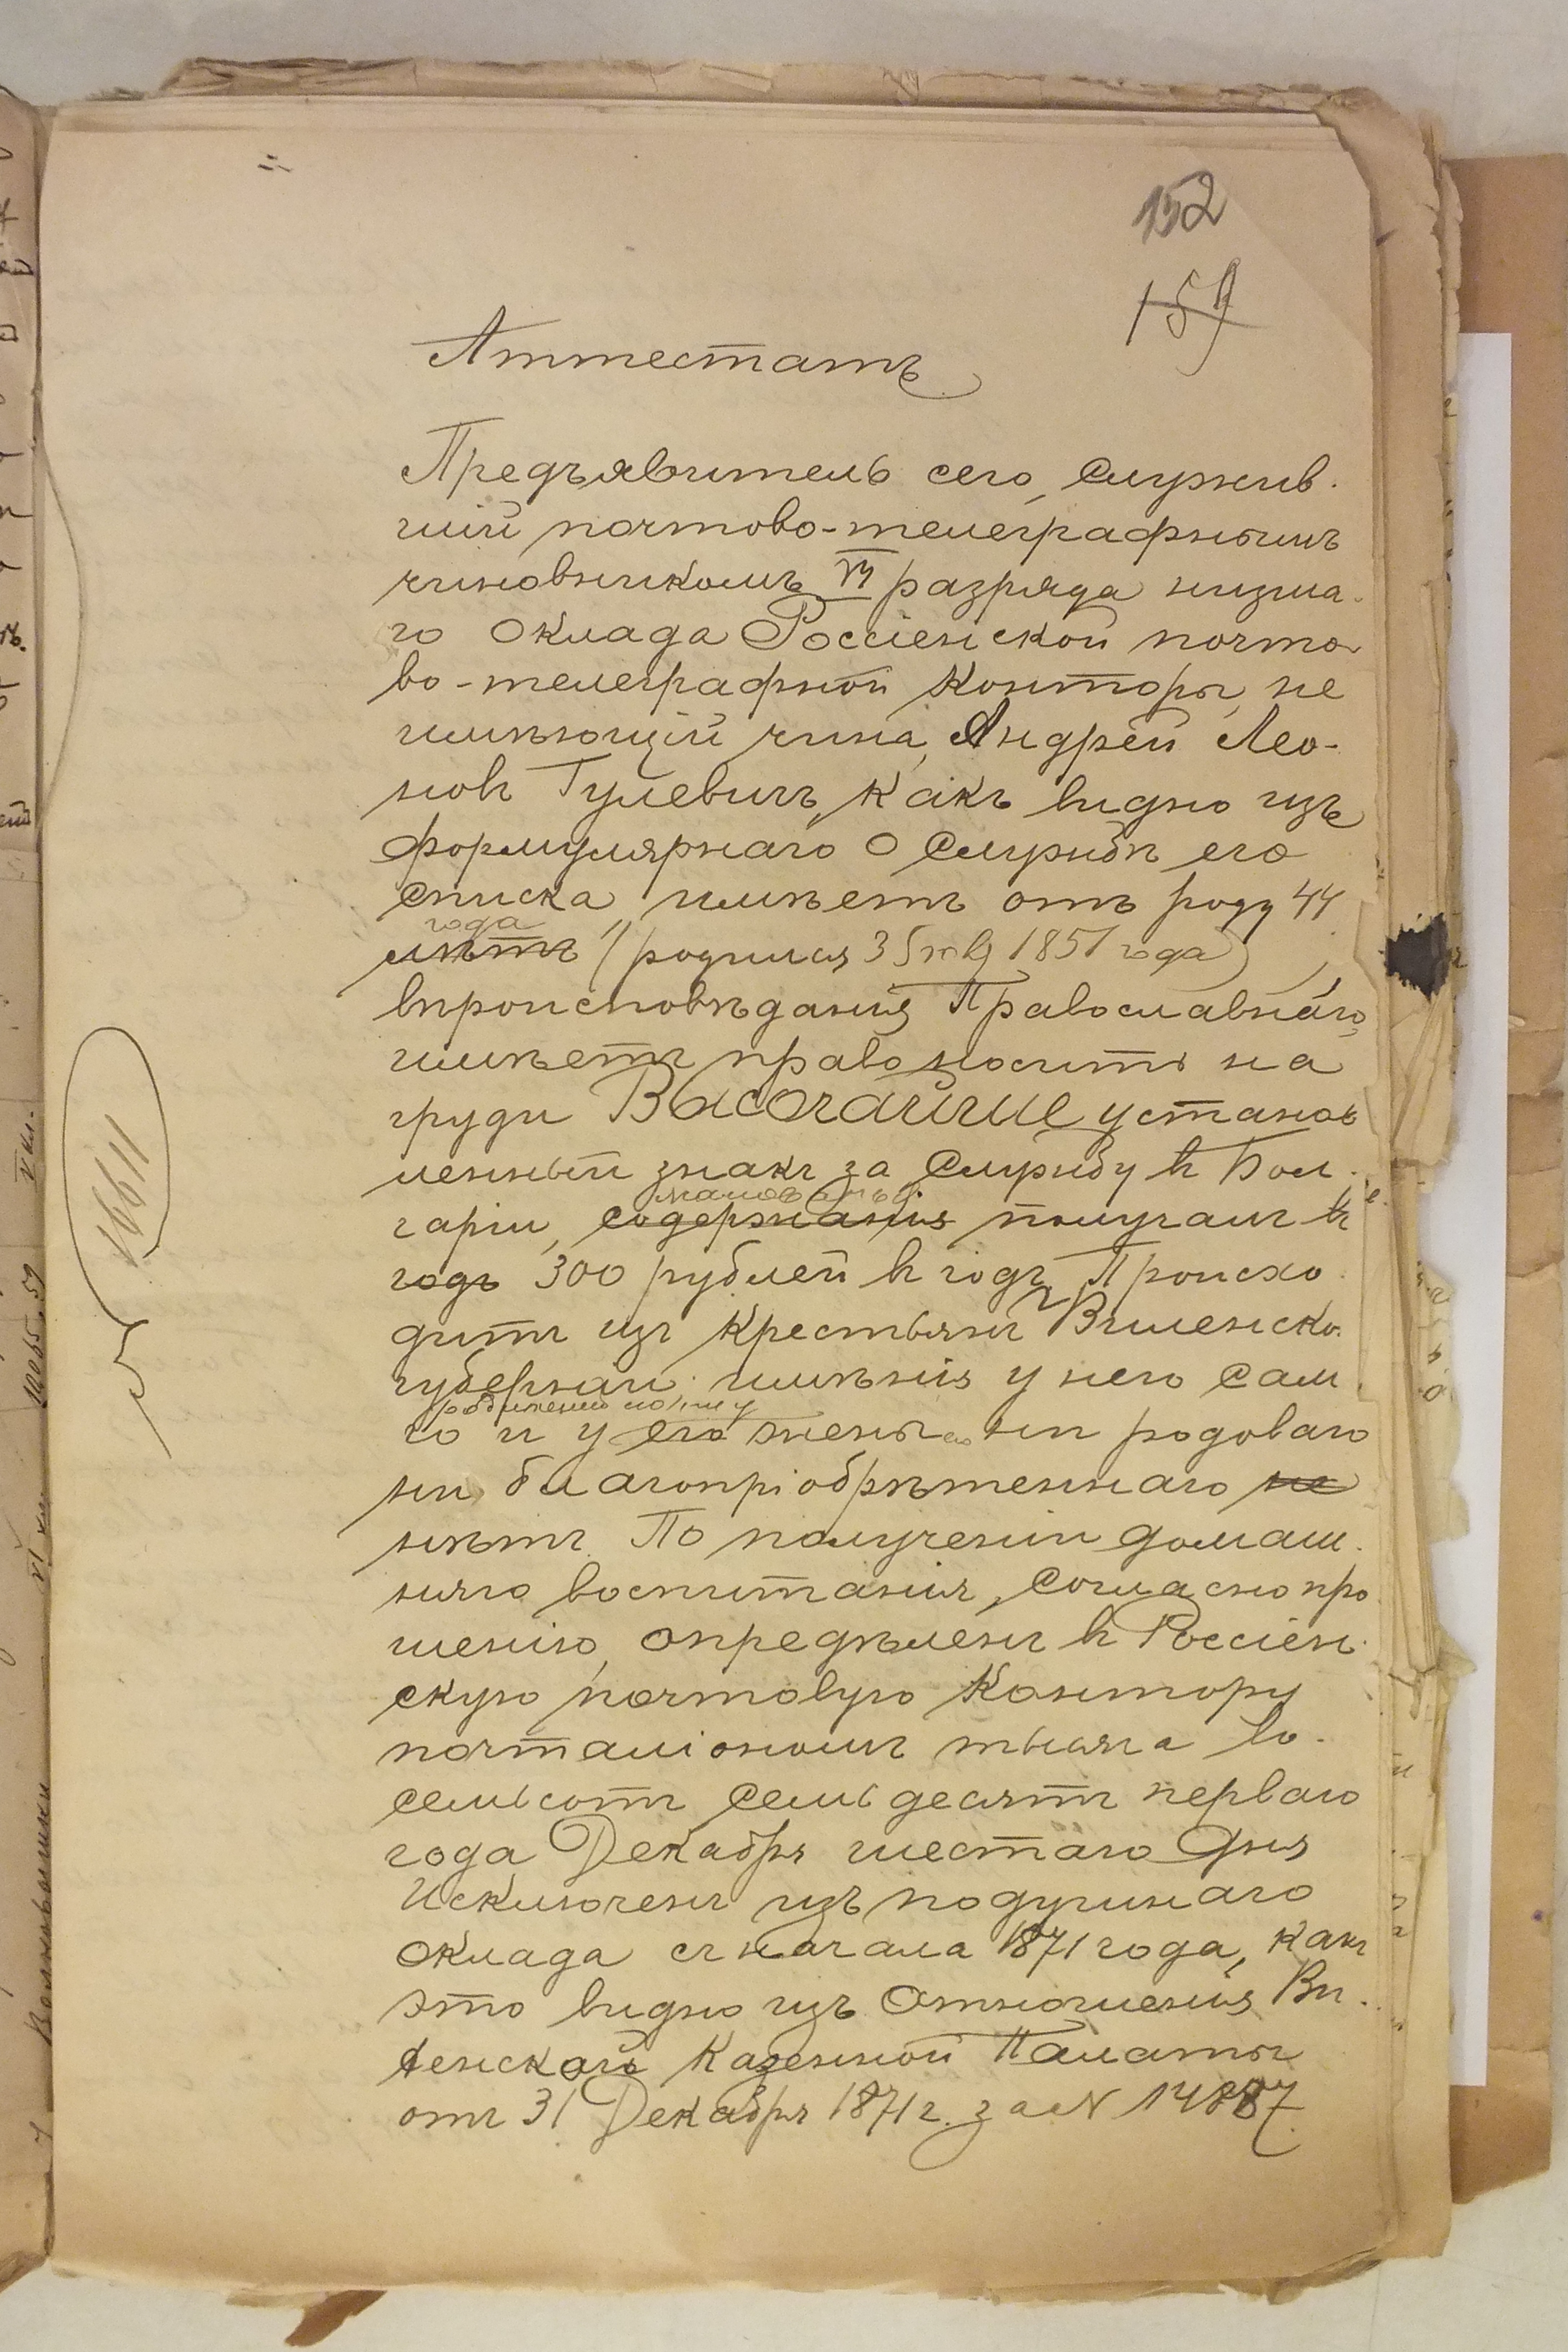 152
159
Аттестатъ
Предъявитель сего, служив-
шій почтово-телеграфнымъ
чиновникомъ VI разряда низша-
го оклада Россіенской почто-
во-телеграфной конторы, не
имѣющій чина, Андрей Лео-
новъ Гулевичъ, какъ видно изъ
формулярнаго о службѣ его
списка имѣетъ отъ роду 44
года
лѣтъ (родился 3 1851 года)
вѣроисповѣданія Православнаго,
имѣетъ право носить на
груди Высочайше установ
ленный знакъ за службу въ Бол-
жалованья
гаріи, содержанія получалъ въ
годъ 300 рублей въ годъ. Происхо-
дитъ изъ крестьянъ Виленско
губерніи; имѣнія у него сам
го и у его жены ни родоваго
ни благопріобрѣтеннаго не
нѣтъ. По полученіи домаш-
няго воспитанія, согласно про
шенію, опредѣленъ въ Россіен-
скую почтовую контору
почталіономъ тысяча во-
семьсотъ семьдесятъ перваго
года Декабря шестаго дня
Исключенъ изъ подушнаго
оклада съ начала 1871 года, какъ
это видно изъ отношенія Ви-
ленской Казенной Палаты
отъ 31 Декабря 1871 г. за N 14887